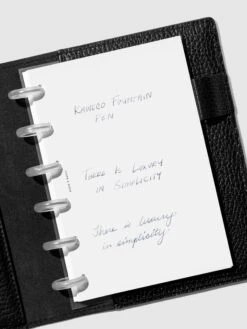 KAWECO FOUNTAIN
PEN
THERE IS LUXURY
IN SIMPLICITY
There is luxury
in simplicity.